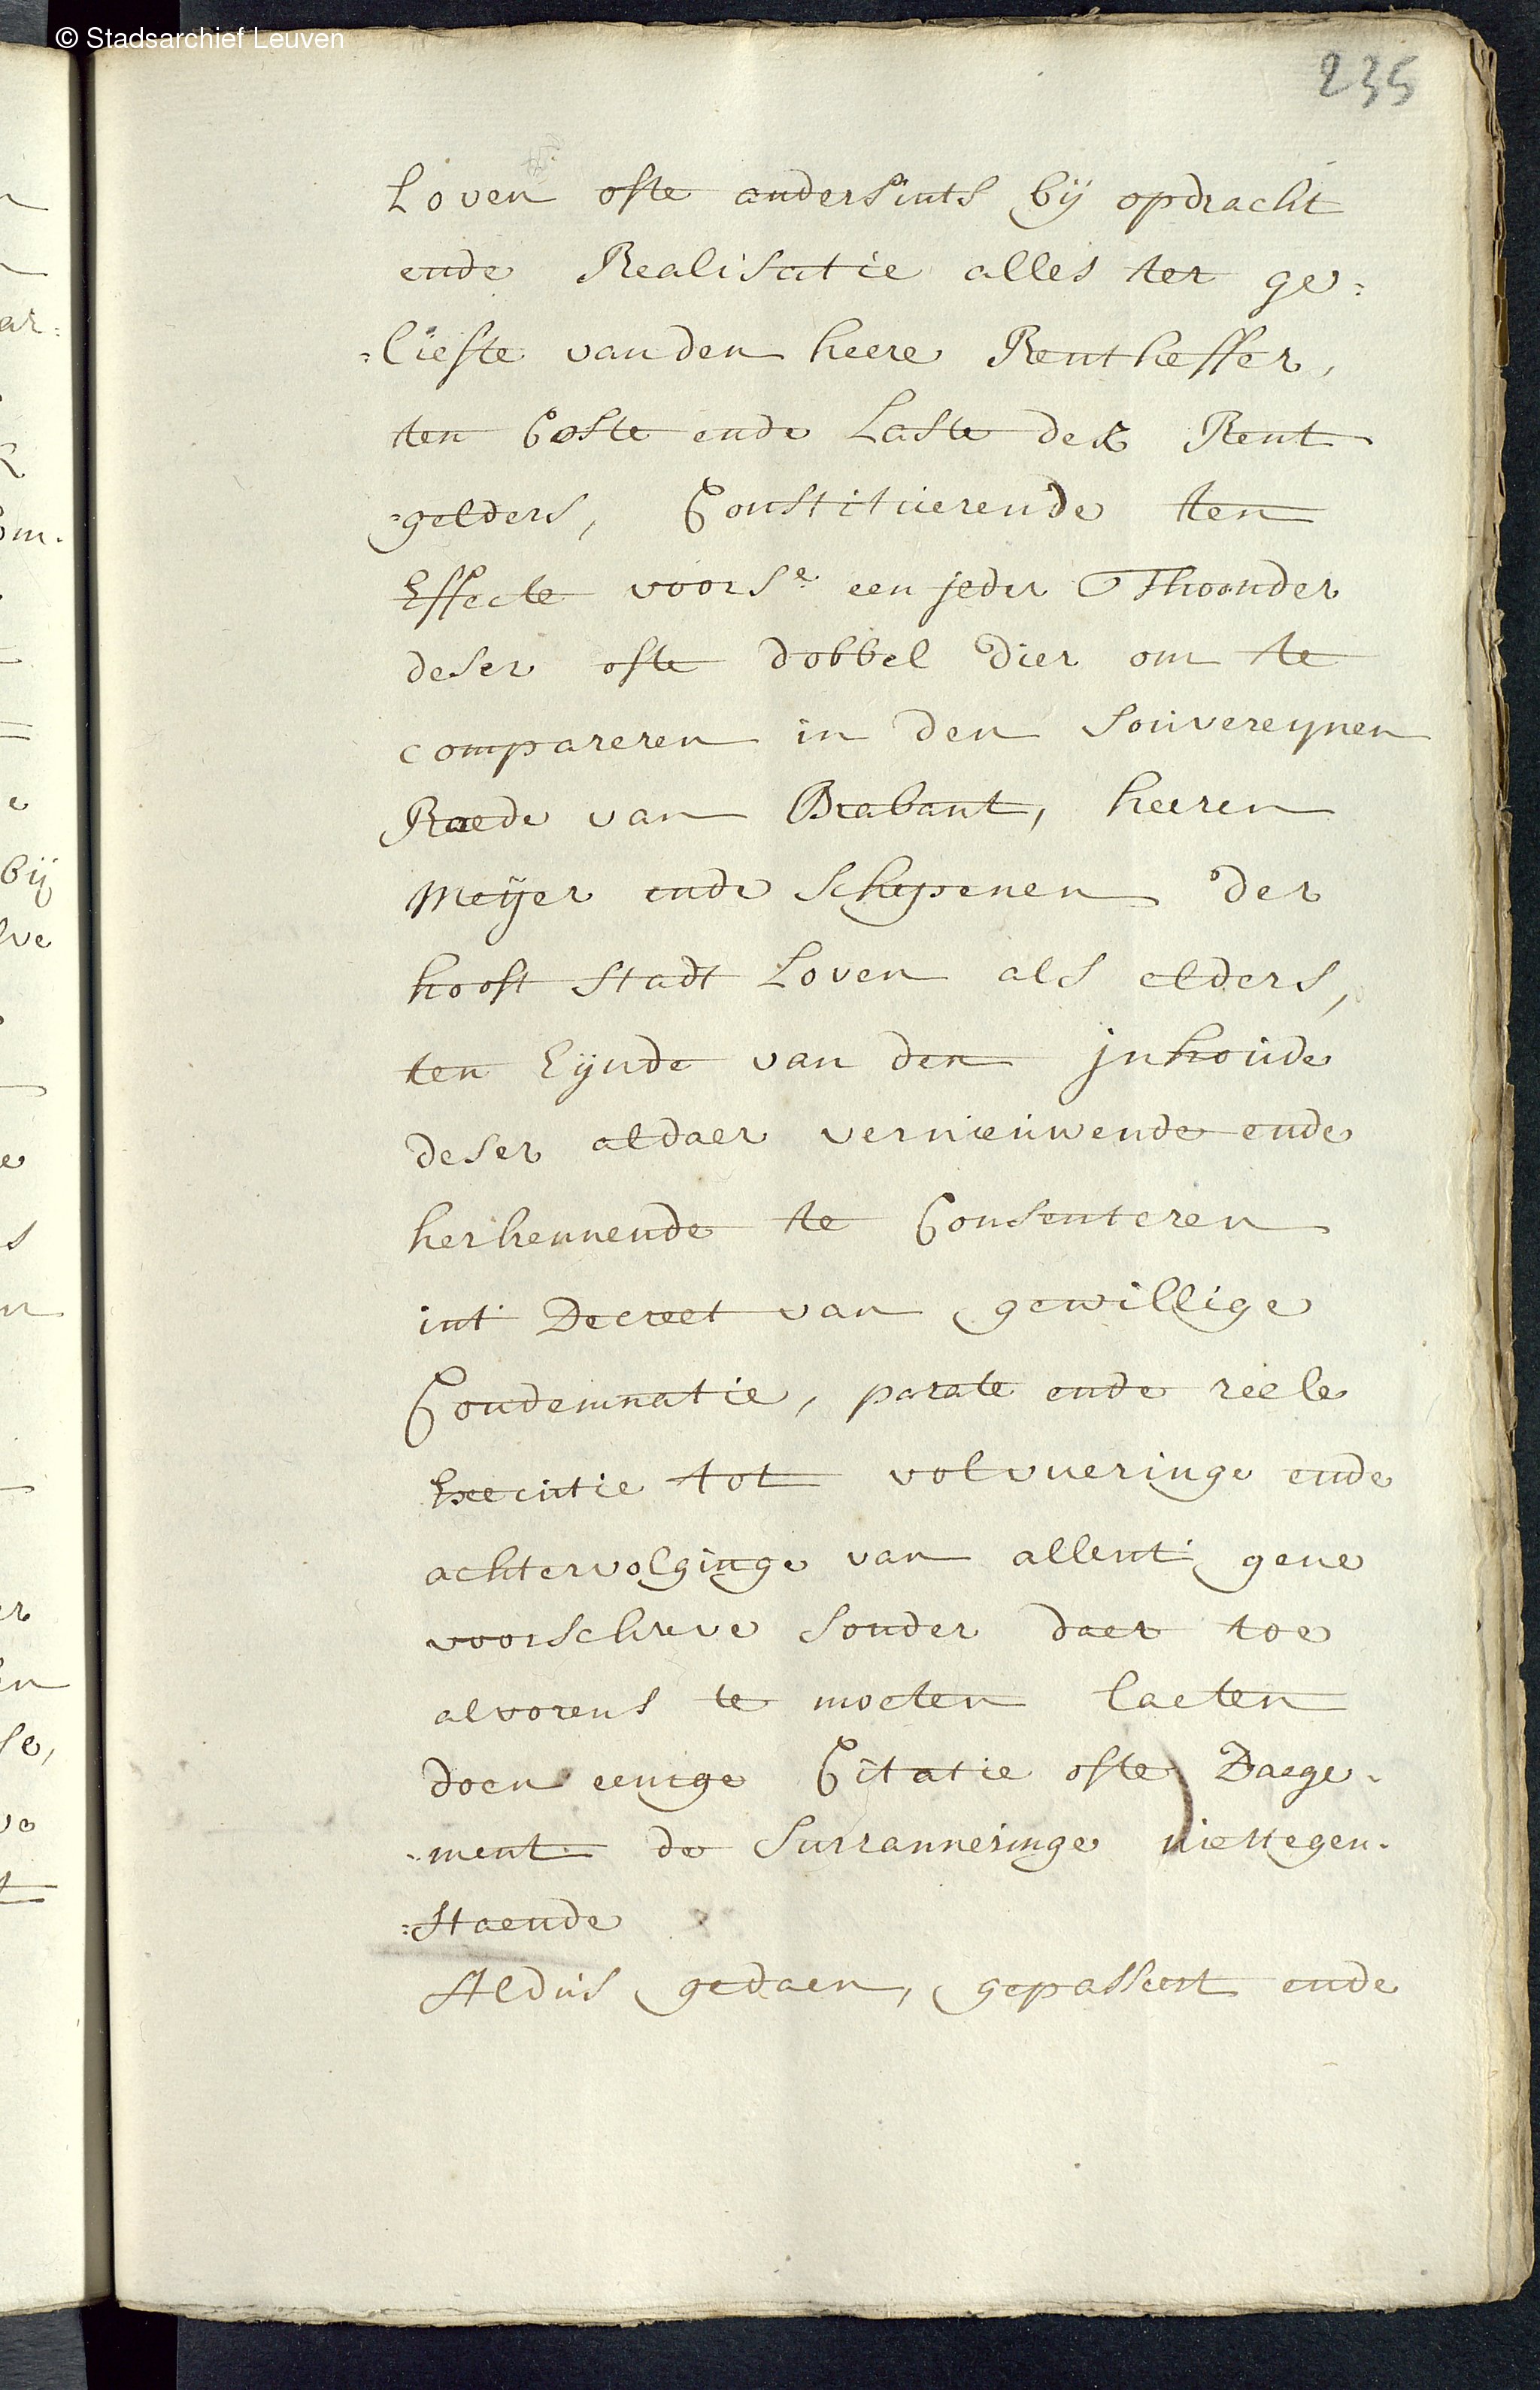 © Stadsarchief Leuven
235
Loven ofte andersints bij opdracht
ende Realisatie alles ter ge=
=liefte vanden heere Rentheffer,
ten Coste ende Laste des Rent
=gelders, Constituerende ten
Effecte voorse een jeder Thoonder
deser ofte dobbel dier om te
compareren in den Souvereynen
Raede van Brabant, heeren
Meyer ende Schepenen der
hooft stadt Loven als elders,
ten Eynde van den jnhoude
deser aldaer vernieuwende ende
herkennende te Consenteren
int Decreet van gewillige
Condemnatie, parate ende reele
Executie tot volvueringe ende
achtervolginge van allent gene
voorschreve sonder daer toe
alvorens te moeten laeten
doen eenige Citatie ofte Daege=
=ment de Surranneringe niettegen=
=staende
Aldus gedaen, gepasseert ende